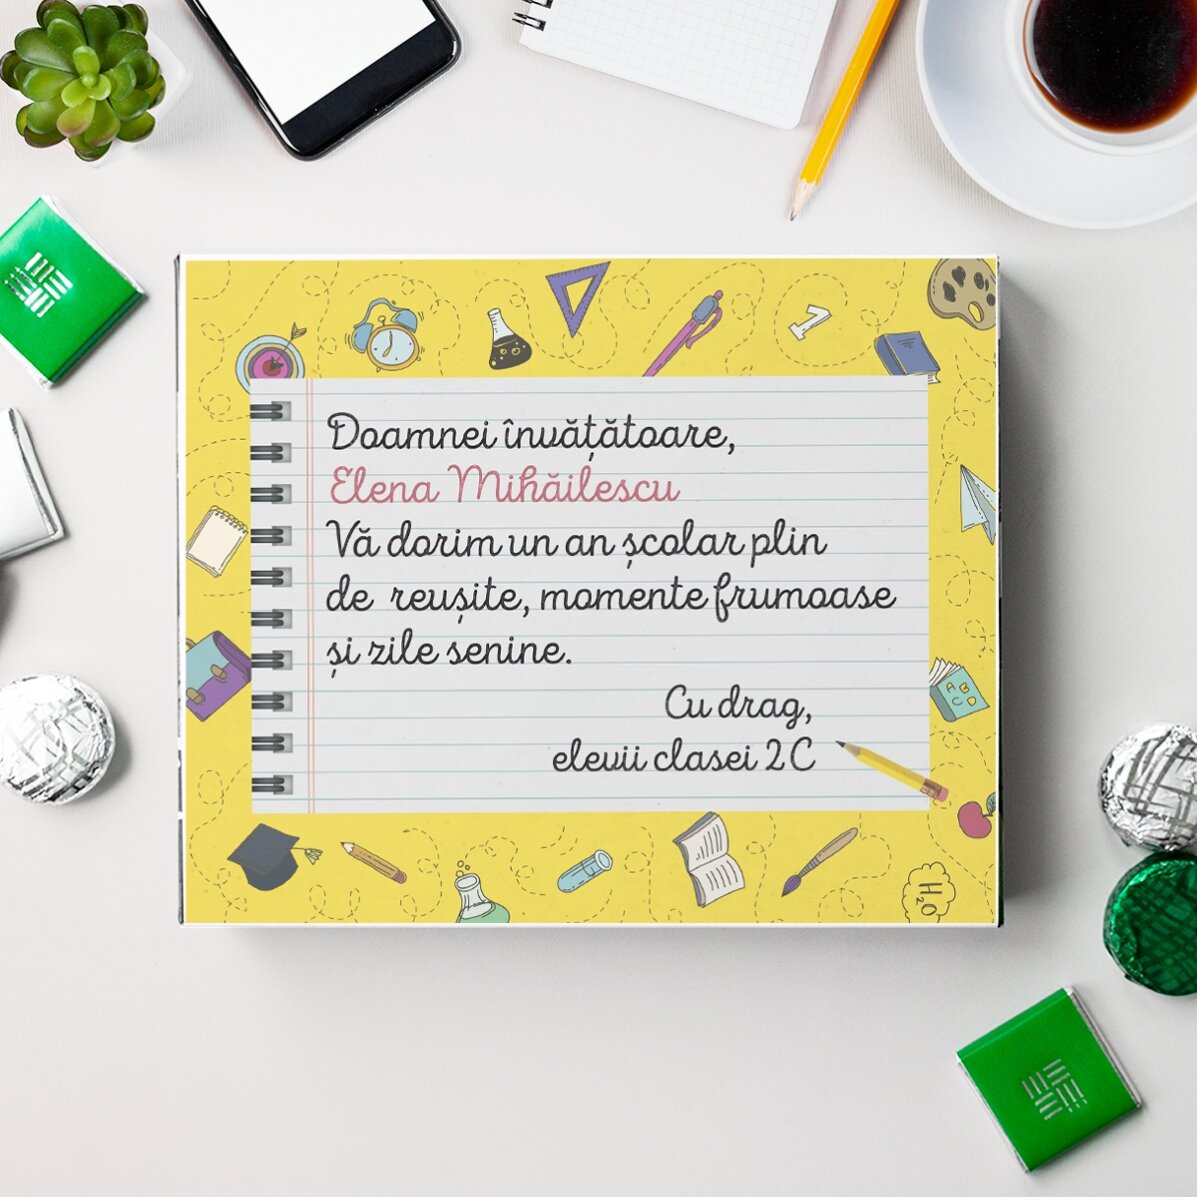 Doamnei învățătoare,
Elena Mihăilescu
Vă dorim un an școlar plin
de reușite, momente frumoase
și zile senine.
Cu drag,
elevii clasei 2C
1
A B
C D
H2O